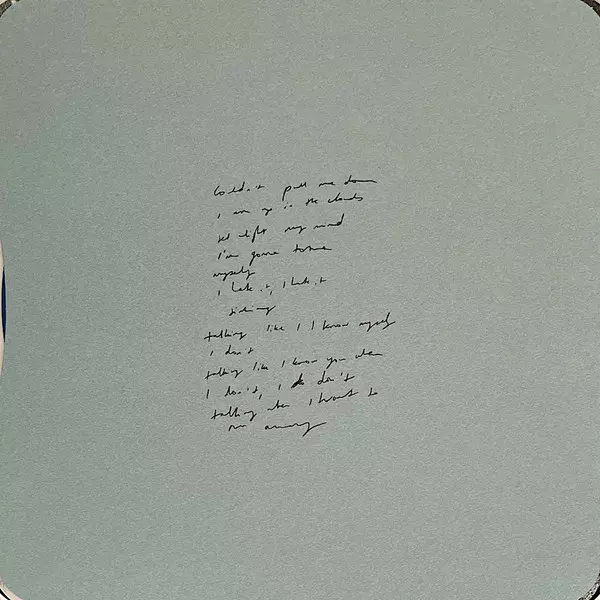 Couldn't pull me down
I am up in the clouds
my mind
I'm gonna
myself
I hate it, I hate it
talking like I I know myself
I don't
talking like I know you when
I don't, I do don't
talking when I want to
run away